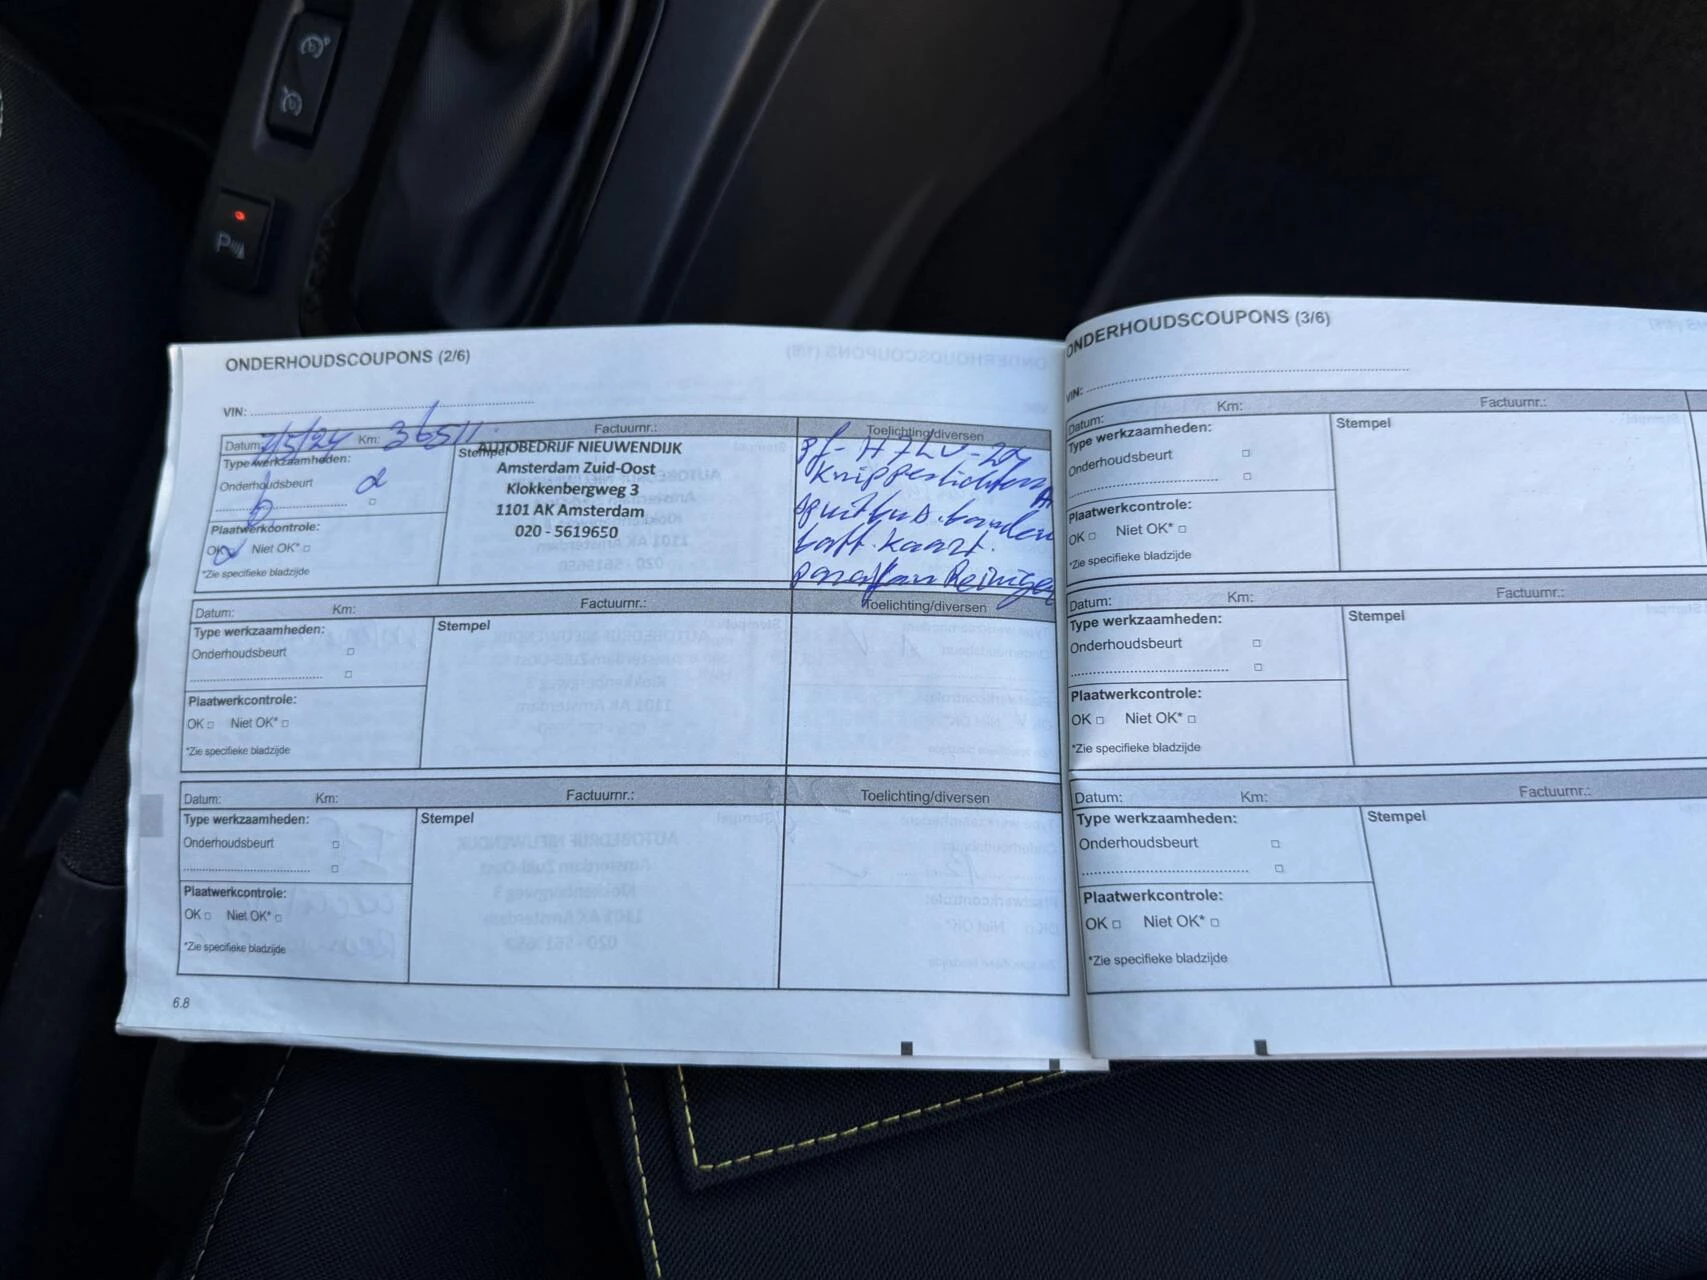 ONDERHOUDSCOUPONS (2/6)
VIN:
Datum: 7/5/24 Km: 36511. Factuurnr.: Toelichting/diversen
Type werkzaamheden:
Onderhoudsbeurt
Plaatwerkcontrole:
OK Niet OK*
*Zie specifieke bladzijde
Stempel
AUTOBEDRIJF NIEUWENDIJK
Amsterdam Zuid-Oost
Klokkenbergweg 3
1101 AK Amsterdam
020 - 5619650
Knipperlichten
spuitbus. banden
batt. kaart.
Reiniger
Datum: Km: Factuurnr.: Toelichting/diversen
Type werkzaamheden:
Onderhoudsbeurt
Plaatwerkcontrole:
OK Niet OK*
*Zie specifieke bladzijde
Stempel
Datum: Km: Factuurnr.: Toelichting/diversen
Type werkzaamheden:
Onderhoudsbeurt
Plaatwerkcontrole:
OK Niet OK*
*Zie specifieke bladzijde
Stempel
6.8
ONDERHOUDSCOUPONS (3/6)
VIN:
Datum: Km: Factuurnr.:
Type werkzaamheden:
Onderhoudsbeurt
Plaatwerkcontrole:
OK Niet OK*
*Zie specifieke bladzijde
Stempel
Datum: Km: Factuurnr.:
Type werkzaamheden:
Onderhoudsbeurt
Plaatwerkcontrole:
OK Niet OK*
*Zie specifieke bladzijde
Stempel
Datum: Km: Factuurnr.:
Type werkzaamheden:
Onderhoudsbeurt
Plaatwerkcontrole:
OK Niet OK*
*Zie specifieke bladzijde
Stempel